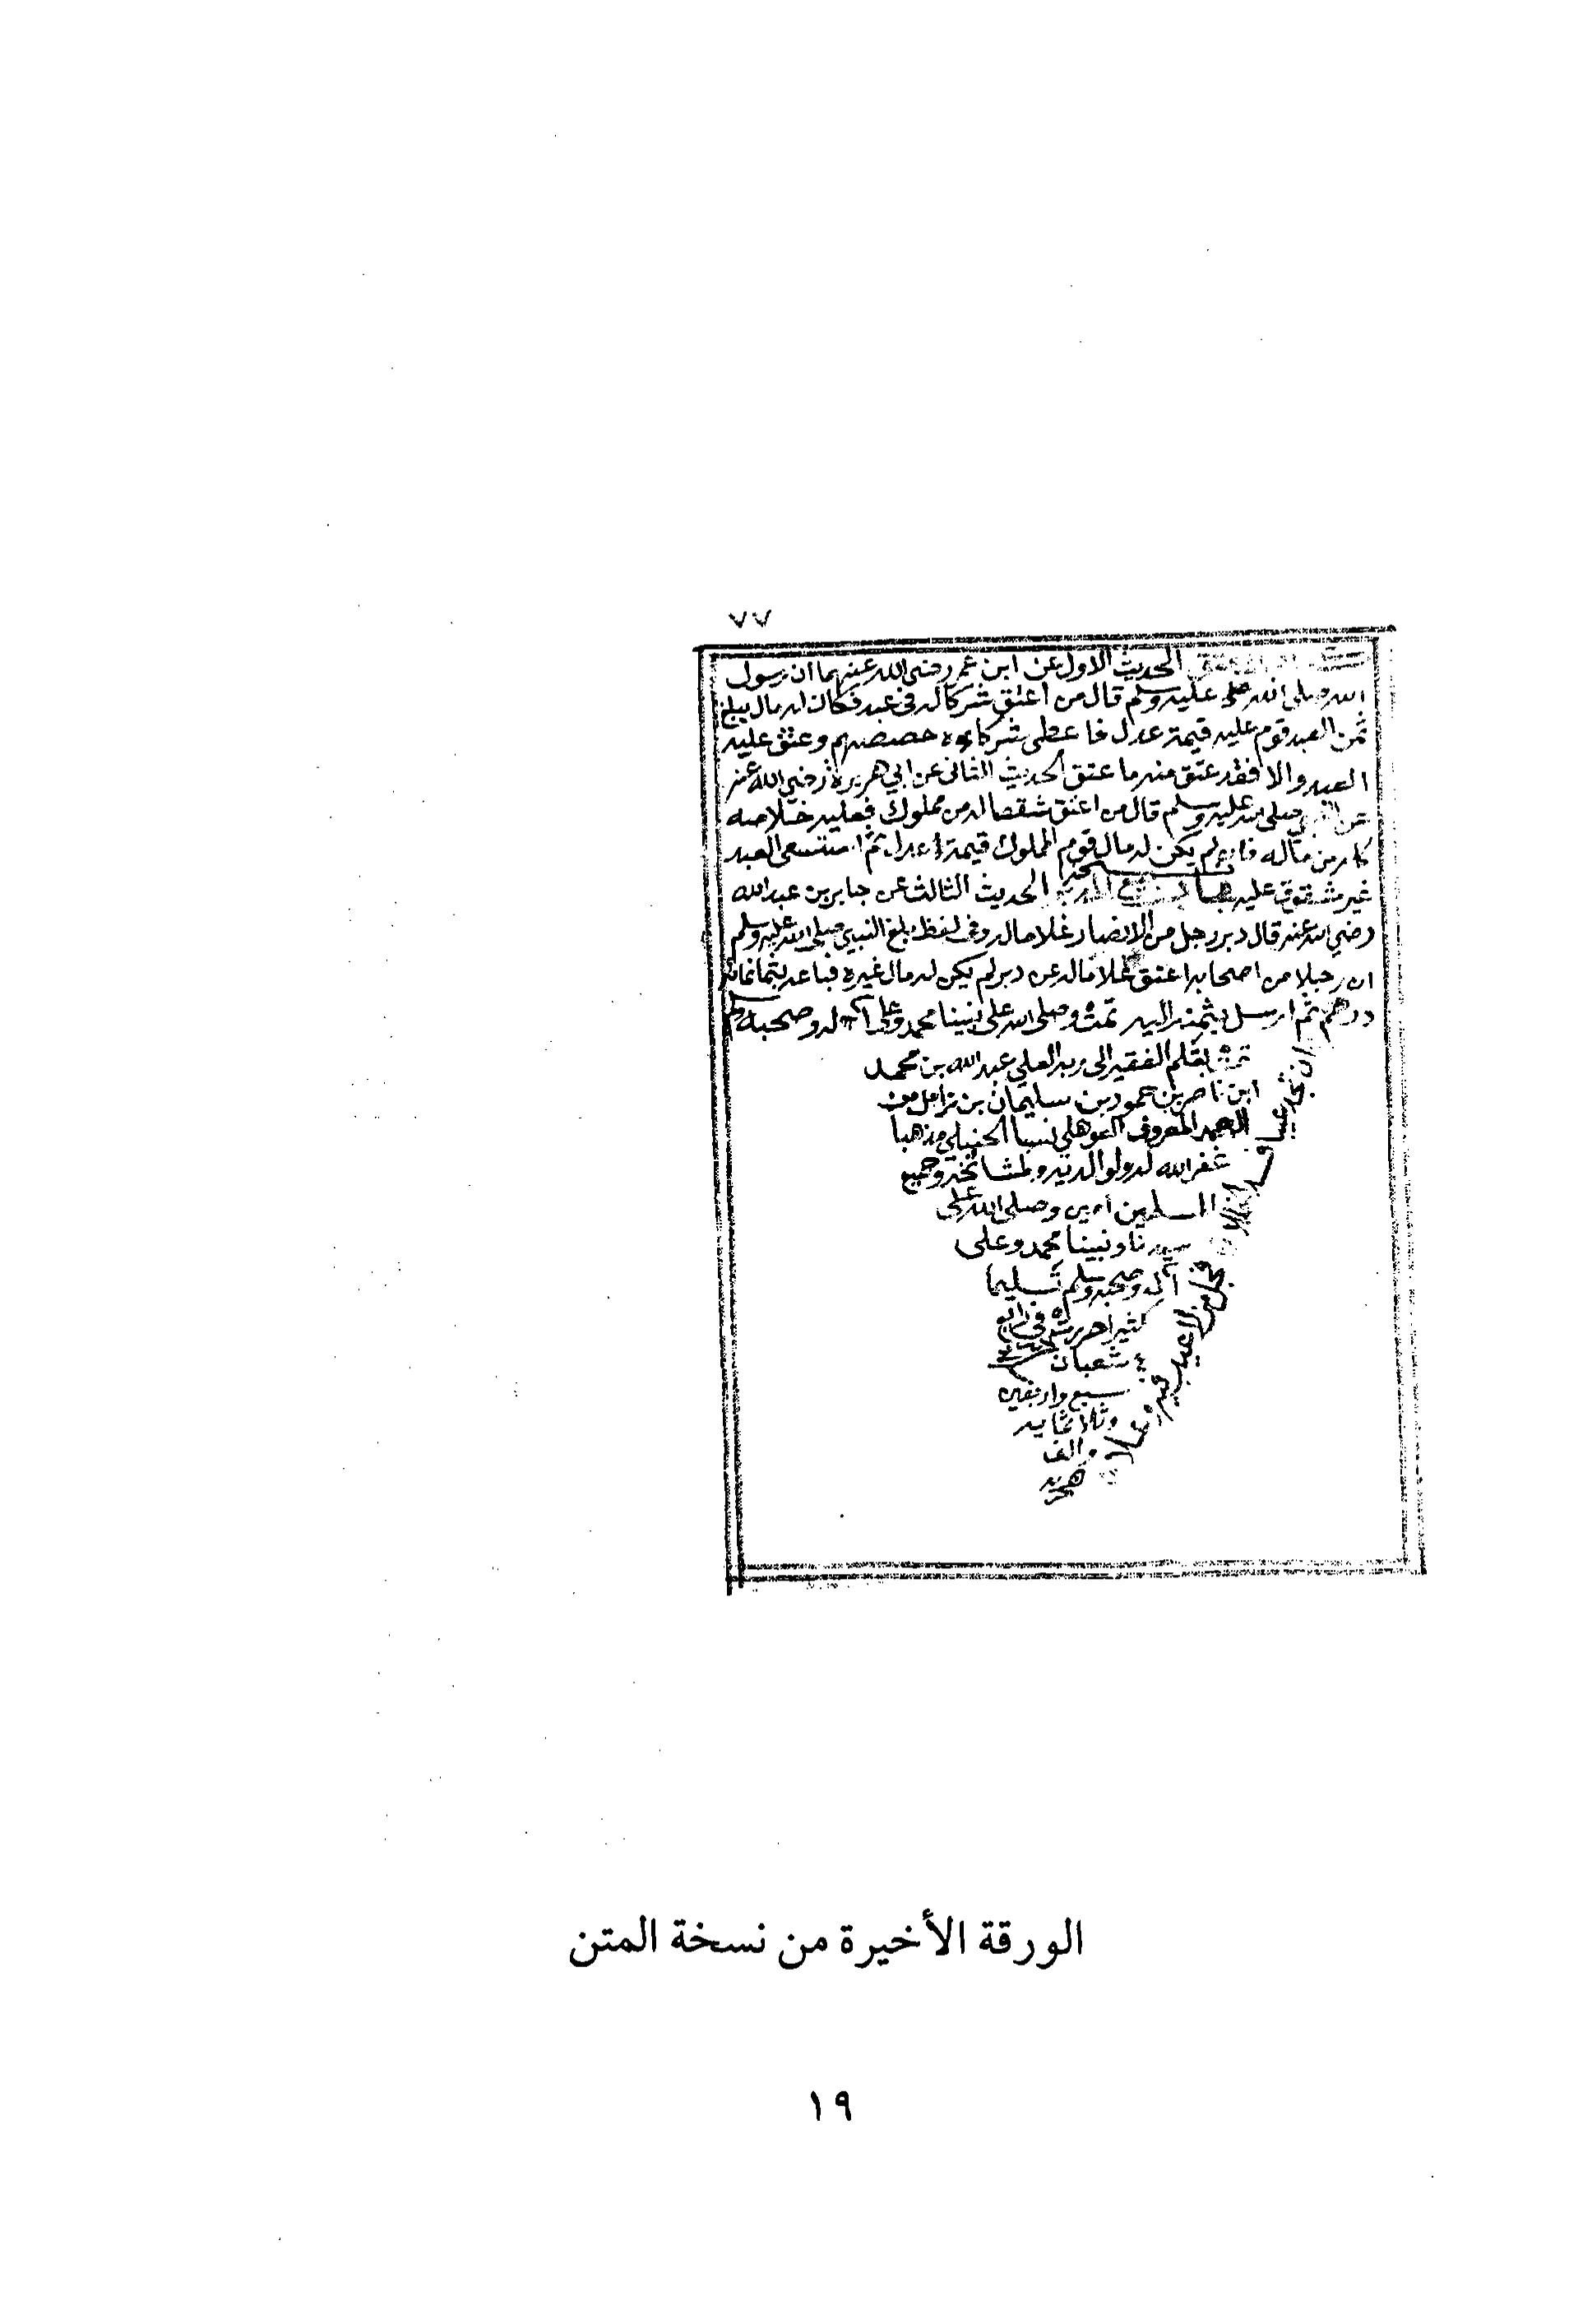 ٧٧
الحديث الاول عن ابن عمر رضي الله عنهما ان رسول
الله صلى الله عليه وسلم قال من اعتق شركا له في عبد فكان له مال يبلغ
ثمن العبد قوم عليه قيمة عدل فاعطى شركاءه حصصهم وعتق عليه
العبد والا فقد عتق منه ما عتق الحديث الثاني عن ابي هريرة رضي الله عنه
عن النبي صلى الله عليه وسلم قال من اعتق شقصا له من مملوك فعليه خلاصه
كله من ماله فان لم يكن له مال قوم المملوك قيمة عدل ثم استسعى العبد
غير مشقوق عليه باب بيع المدبر الحديث الثالث عن جابر بن عبد الله
رضي الله عنه قال دبر رجل من الانصار غلاما له وفي لفظ بلغ النبي صلى الله عليه وسلم
ان رجلا من اصحابه اعتق غلاما له عن دبر لم يكن له مال غيره فباعه بثمانمائة
درهم ثم ارسل بثمنه اليه تمت وصلى الله على نبينا محمد وعلى آله وصحبه وسلم
تمت بقلم الفقير الى ربه العلي عبد الله بن محمد
ابن ناصر بن حمود بن سليمان بن زامل من
المعروف العوهلي نسبا الحنبلي مذهبا
غفر الله له ولوالديه ولمشائخه وجميع
المسلمين امين وصلى الله على
سيدنا ونبينا محمد وعلى
آله وصحبه وسلم تسليما
كثيرا حررت في
٤ شعبان
سبع واربعين
وثلاثمايه
والف
هجريه
ان تجد عيبا فسد الخللا
فجل من لا عيب فيه وعلا
الورقة الأخيرة من نسخة المتن
١٩